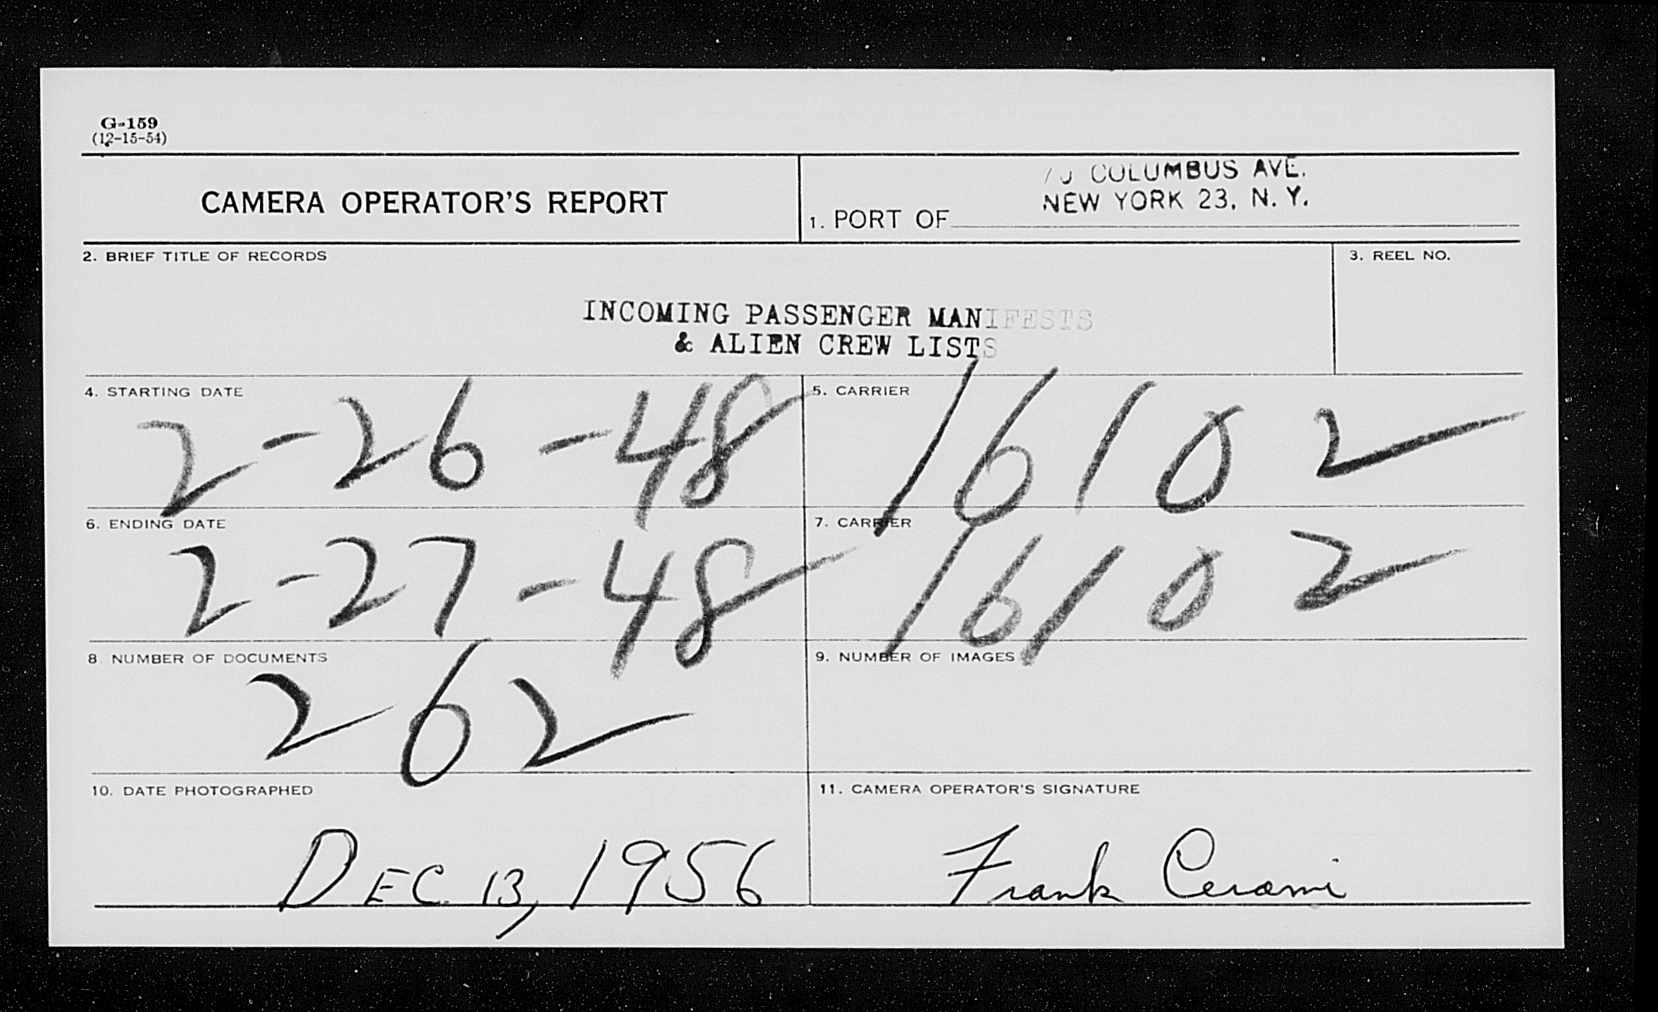 G-159
(12-15-54)
COLUMBUS AVE.
NEW YORK 23, N.Y.
CAMERA OPERATOR'S REPORT
1. PORT OF
2. BRIEF TITLE OF RECORDS
3. REEL NO.
INCOMING PASSENGER MANIFESTS
& ALIEN CREW LISTS
4. STARTING DATE
2-26-48
5. CARRIER
16102
6. ENDING DATE
2-27-48
7. CARRIER
16102
8. NUMBER OF DOCUMENTS
262
9. NUMBER OF IMAGES
10. DATE PHOTOGRAPHED
DEC. 13, 1956
11. CAMERA OPERATOR'S SIGNATURE
Frank Cerami